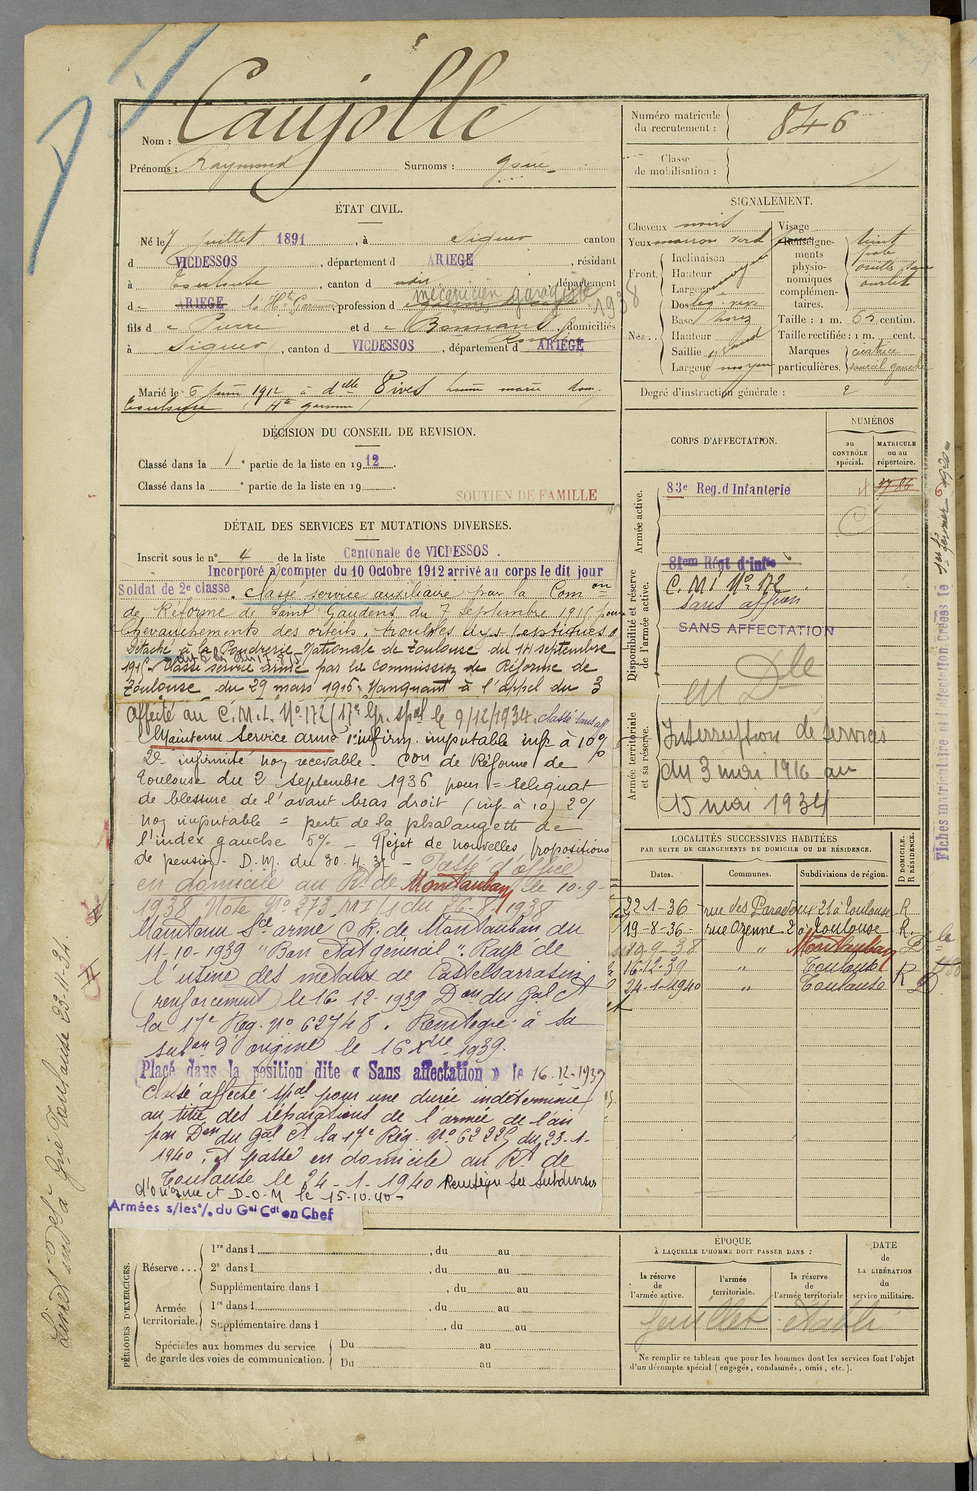 Nom : Caujolle
Prénoms : Raymond Surnoms :
Numéro matricule du recrutement : 846
Classe de mobilisation :
ÉTAT CIVIL.
Né le 7 Juillet 1891, à Siguer canton
d VICDESSOS, département d ARIEGE, résidant
à Toulouse, canton d udit département
d ARIEGE la Hte Garonne, profession d mécanicien garagiste 1938
fils d e Pierre et d e Bonnans, domiciliés
à Siguer, canton d VICDESSOS, département d ARIEGE
Marié le 6 Juin 1912 à dlle Vives
Toulouse Hte Garonne
DÉCISION DU CONSEIL DE REVISION.
Classé dans la 1e partie de la liste en 1912.
Classé dans la e partie de la liste en 19
SOUTIEN DE FAMILLE
DÉTAIL DES SERVICES ET MUTATIONS DIVERSES.
Inscrit sous le n° 4 de la liste Cantonale de VICDESSOS.
Incorporé à compter du 10 Octobre 1912 arrivé au corps le dit jour
Soldat de 2e classe. Classé service auxiliaire par la Comon
de Réforme de Saint Gaudens du 7 Septembre 1915 pour
chevauchements des orteils, troubles dyspeptiques
Détaché à la Poudrerie Nationale de Toulouse du 14 septembre
1915. Classé service armé par la Commission de Réforme de
Toulouse du 29 mars 1916. Manquant à l'appel du 3
Affecté au C.M.I. N° 172/17e Gr. spal le 9/12/1934. classé sans aff
Maintenu service armé 1° infirm. imputable inf à 10%
2° infirmité non recevable. Con de Réforme de
Toulouse du 2 septembre 1936 pour = reliquat
de blessure de l'avant bras droit (inf à 10) 2°/
non imputable = perte de la phalangette de
l'index gauche 5% - Rejet de nouvelles propositions
de pension - D.M. du 30.4.37 - Passé d'office
en domicile au Rt de Montauban le 10-9-
1938 Note N° 273
Maintenu Sce armé C.R. de Montauban du
11-10-1939 "Bon Etat général". Rayé de
l'usine des métaux de Castelsarrasin
(renforcement) le 16 12 1939 Don du Gal Ct
la 17e Reg. N° 62748. Réintégré à sa
subon d'origine le 16 Xbre 1939.
Placé dans la position dite « Sans affectation » le 16-12-1939
Classé affecté spal pour une durée indéterminée
au titre des réparations de l'armée de l'air
par Don du Gal Ct la 17e Rég. N° 62225 du 23-1-
1940, et passé en domicile au Rt de
Toulouse le 24-1-1940 Réintégré sa subdivision
d'origine et D.O.M le 15-10-40-
Armées s/les °/. du Gal Cdt en Chef
SIGNALEMENT.
Cheveux noirs
Yeux marron verd
Front. Inclinaison
Hauteur
Largeur
Nez. Dos
Base
Hauteur
Saillie
Largeur moyen
Visage
Renseignements physionomiques complémentaires. teint
Taille : 1 m. 63 centim.
Taille rectifiée : 1 m. cent.
Marques particulières. cicatrice sourcil gauche
Degré d'instruction générale : 2
CORPS D'AFFECTATION.
NUMÉROS
au CONTRÔLE spécial.
MATRICULE ou au répertoire.
Armée active.
83e Reg. d'Infanterie
Disponibilité et réserve de l'armée active.
81em Régt d'infie
C.M.I N° 172
sans affion
SANS AFFECTATION
en Dle
Armée territoriale et sa réserve.
Interruption de services
du 3 mai 1916 au
15 mai 1934
LOCALITÉS SUCCESSIVES HABITÉES
PAR SUITE DE CHANGEMENTS DE DOMICILE OU DE RÉSIDENCE.
D DOMICILE. R RÉSIDENCE.
Dates. Communes. Subdivisions de région.
22-1-36- rue des Paradoux 21 à Toulouse R
19-8-36- rue Ozenne 2 à Toulouse R.
10-9-38 " Montauban D
16-12-39 " Toulouse R
24-1-1940 " Toulouse D
PÉRIODES D'EXERCICES.
Réserve... 1re dans l , du au
2e dans l , du au
Supplémentaire dans l , du au
Armée territoriale. 1re dans l , du au
Supplémentaire dans l , du au
Spéciales aux hommes du service de garde des voies de communication. Du au
Du au
ÉPOQUE
À LAQUELLE L'HOMME DOIT PASSER DANS :
la réserve de l'armée active.
l'armée territoriale.
la réserve de l'armée territoriale
DATE DE LA LIBÉRATION du service militaire.
feuillet établi
Ne remplir ce tableau que pour les hommes dont les services font l'objet
d'un décompte spécial (engagés, condamnés, omis, etc.).
Fiches matriculaire et d'affectation créées le